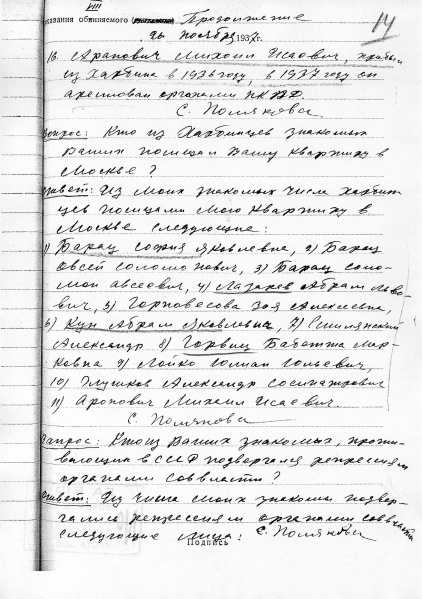 VIII
Показания обвиняемого Продолжение
26 ноября 1937 г.
14
16. Арапович Михаил Исаевич, прибыл
из Харбина в 1936 году, в 1937 году он
арестован органами НКВД.
С. Полякова
Вопрос: Кто из Харбинцев знакомых
Ваших посещал Вашу квартиру в
Москве?
Ответ: Из моих знакомых числе харбин-
цев посещали мою квартиру в
Москве следующие:
1) Барац София Яковлевна, 2) Барац
Овсей Соломонович, 3) Барац Соло-
мон Авсеевич, 4) Лазарев Абрам Льво-
вич, 5) Зоя Алексеевна,
6) Кун Абрам Яковлевич, 7)
Александр 8) Горвиц Бабетта Мар-
ковна 9) Лойко Юлиан Юльевич,
10) Глушков Александр Сосипатрович
11) Аропович Михаил Исаевич.
С. Полякова
Вопрос: Кто из Ваших знакомых, прожи-
вающих в СССР подвергался репрессиям
органами соввласти?
Ответ: Из числа моих знакомых подвер-
гались репрессиям органами соввласти
следующие лица: С. Полякова
Подпись